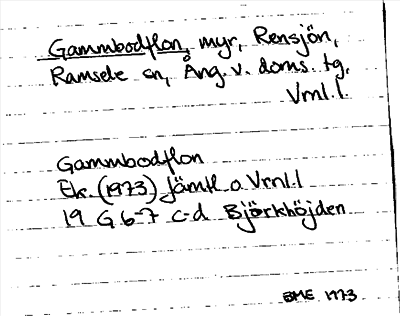 Gammbodflon, myr, Rensjön,
Ramsele sn, Ång. v. doms. tg,
Vrnl. l.
Gammbodflon
Ek. (1973) Jämtl. o Vrnl. l
19 G 6-7 c-d Björkhöjden
BME 1973